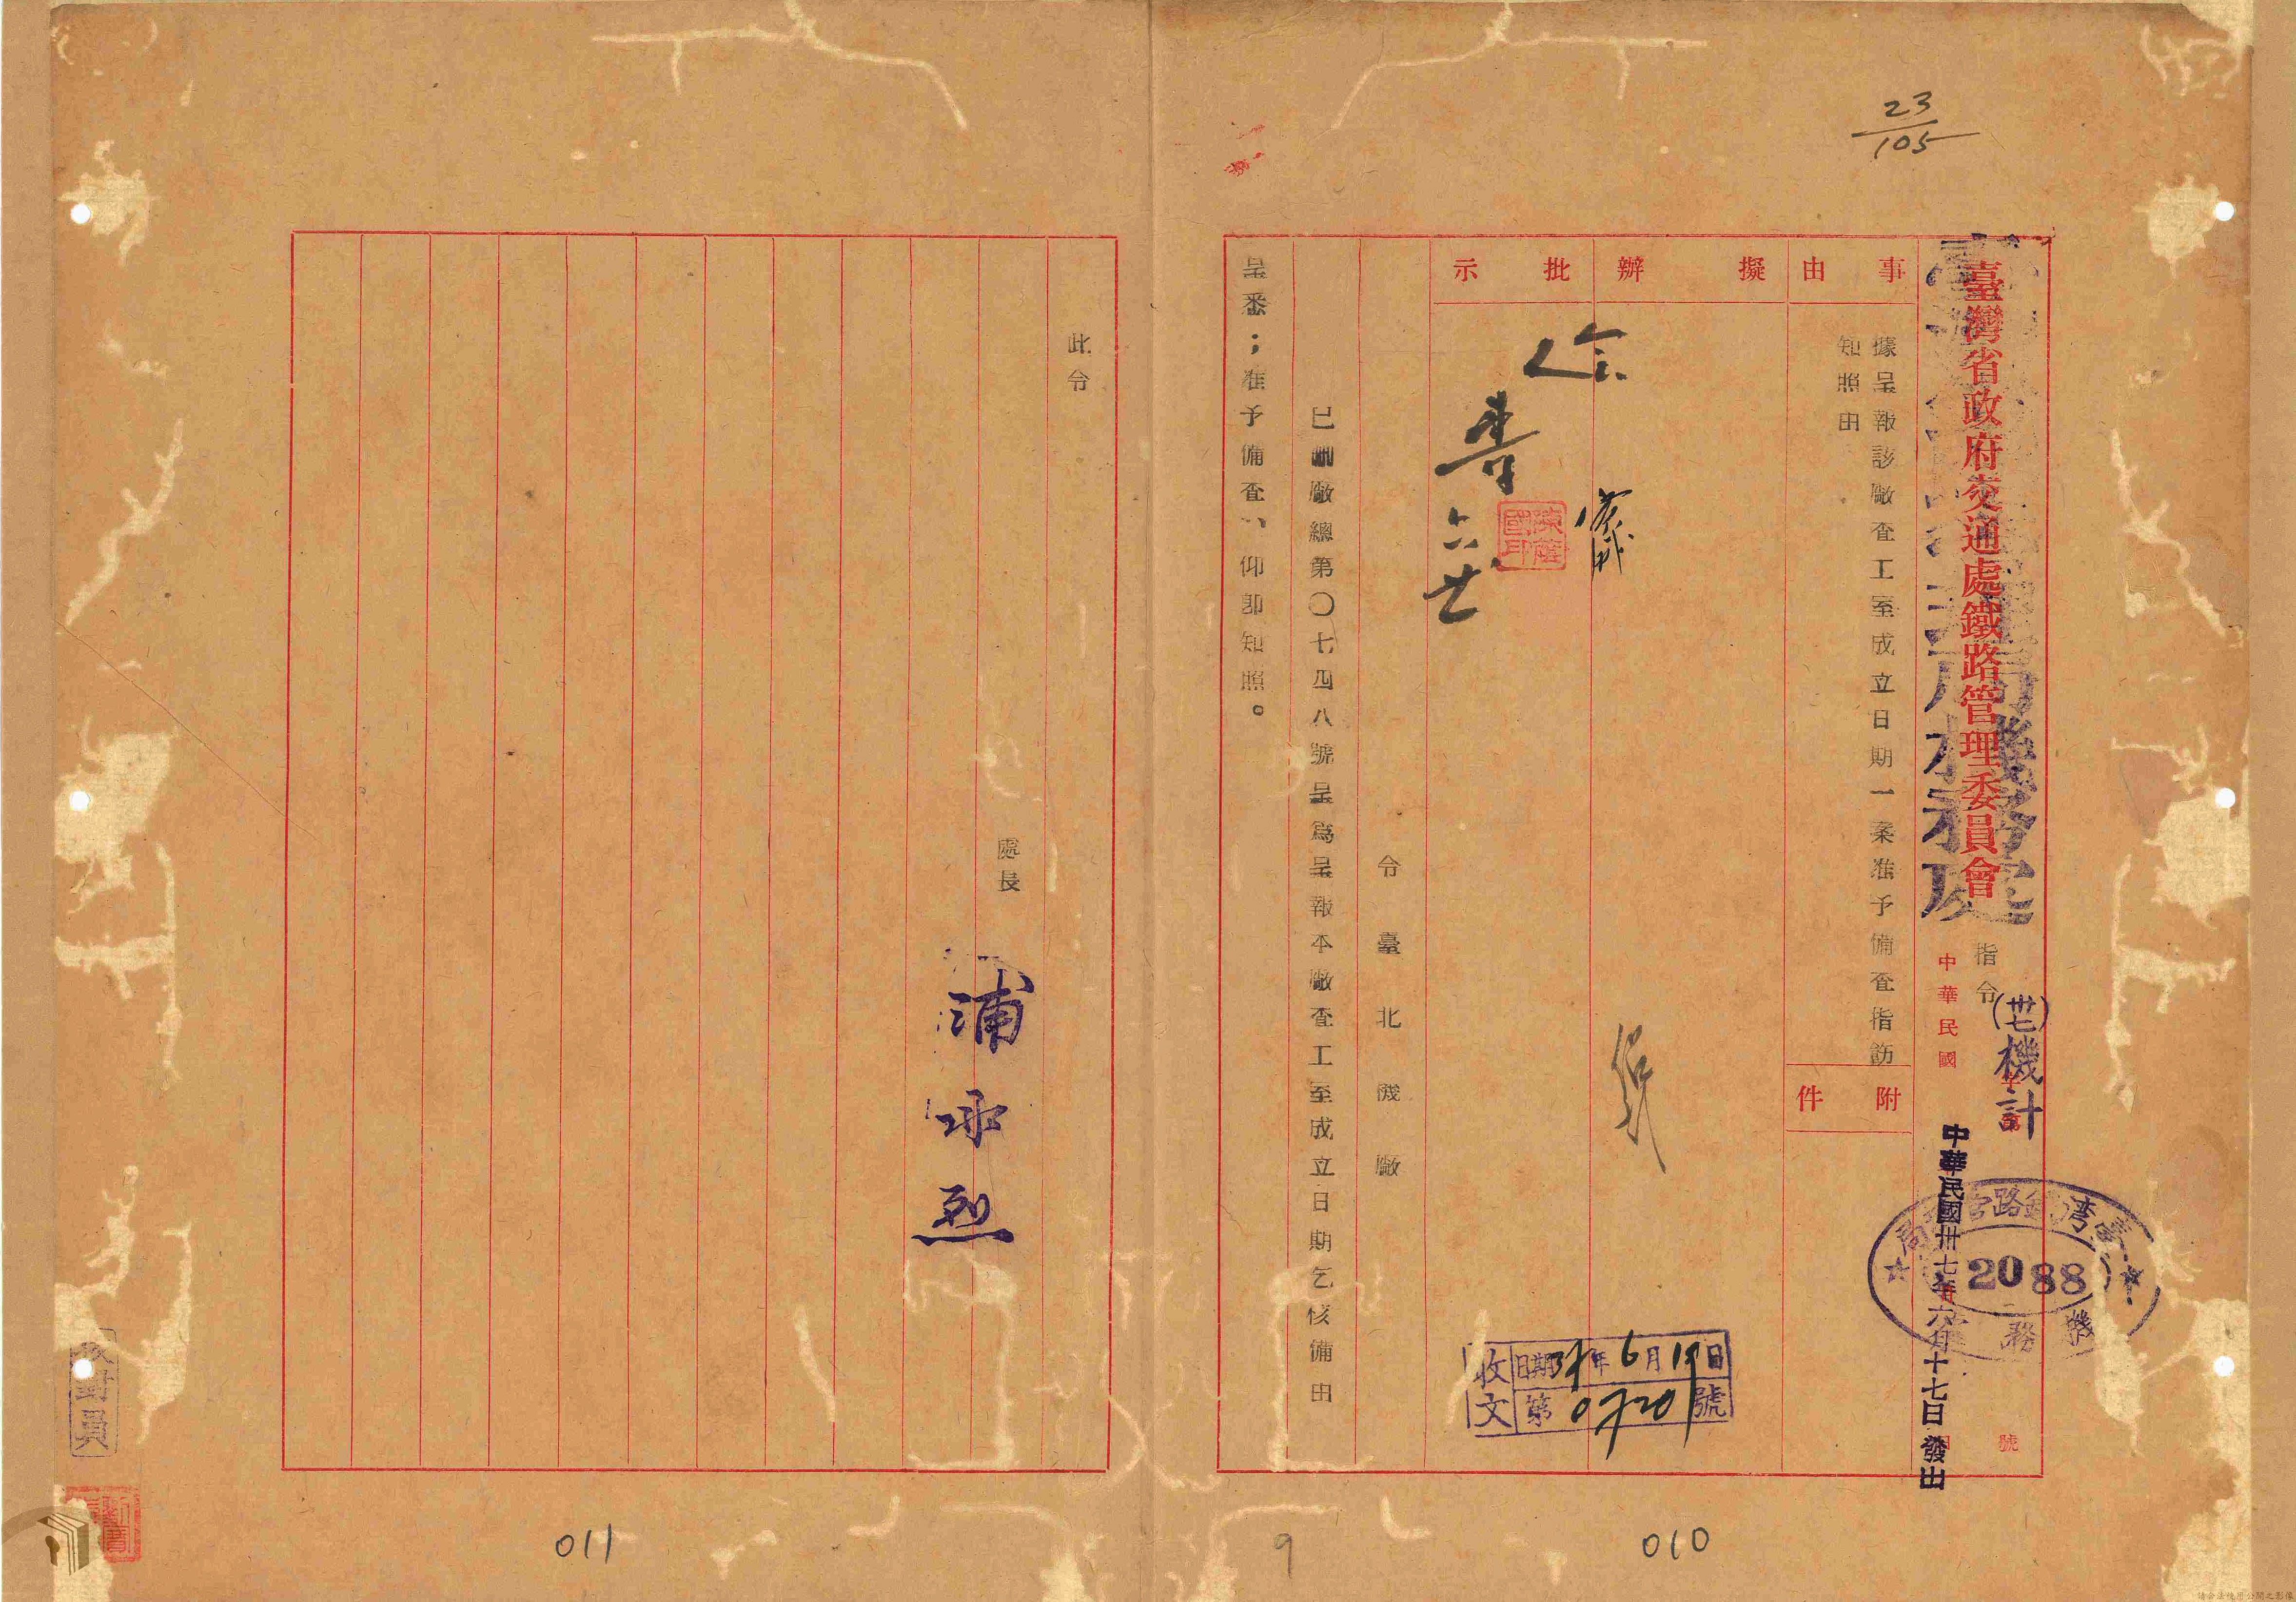 23
105
臺灣省政府交通處鐵路管理委員會
指令
(卅七)機計
字第
號
中華民國
中華民國卅七年六月十七日發出
臺灣鐵路管理局
2088
機務
事由
據呈報該廠查工室成立日期一案准予備查指飭
知照由
附件
擬辦
批示
六廿
陳蓬國印
收文
日期37年6月19日
第0720號
令臺北機廠
已刪廠總第〇七四八號呈為呈報本廠查工室成立日期乞核備由
呈悉;准予備查,仰即知照。
010
9
此令
處長
浦泳烈
校對員
011